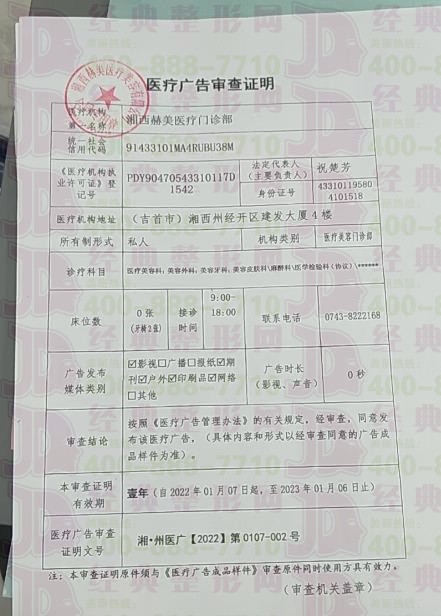 医疗广告审查证明
医疗机构
第一名称
湘西赫美医疗门诊部
统一社会
信用代码
91433101MA4RUBU38M
《医疗机构执
业许可证》登
记号
PDY90470543310117D
1542
法定代表人
（主要负责人）
祝楚芳
身份证号
43310119580
4101518
医疗机构地址
（吉首市）湘西州经开区建发大厦4楼
所有制形式
私人
机构类别
医疗美容门诊部
诊疗科目
医疗美容科；美容外科；美容牙科；美容皮肤科\麻醉科\医学检验科（协议）\******
床位数
0张
（牙椅2张）
接诊
时间
9:00-
18:00
联系电话
0743-8222168
广告发布
媒体类别
☑影视☐广播☐报纸☑期
刊☑户外☑印刷品☑网络
☐其他
广告时长
（影视、声音）
0秒
审查结论
按照《医疗广告管理办法》的有关规定，经审查，同意发
布该医疗广告，（具体内容和形式以经审查同意的广告成
品样件为准）。
本审查证明
有效期
壹年（自2022年01月07日起，至2023年01月06日止）
医疗广告审查
证明文号
湘·州医广【2022】第0107-002号
注：本审查证明原件须与《医疗广告成品样件》审查原件同时使用方具有效力。
（审查机关盖章）
经典整形网
400-888-7710